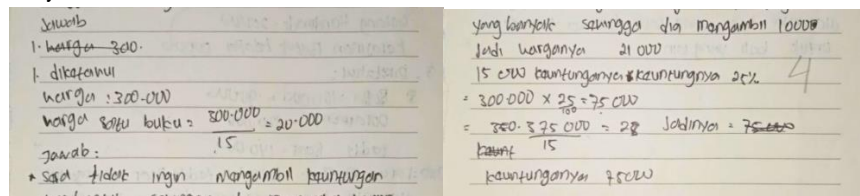 Jawab
1. harga 300.
1. diketahui
harga : 300.000
harga satu buku = 300.000 / 15 = 20.000
Jawab :
* Saya tidak ingin mengambil keuntungan
yang banyak sehingga dia mengambil 1000
Jadi harganya 21 000
15 000 keuntunganya keuntungnya 25%
4
= 300.000 x 25/100 = 75 000
= 375 000 / 15 = 2 Jadinya = 75.000
keunt
keuntunganya 75000